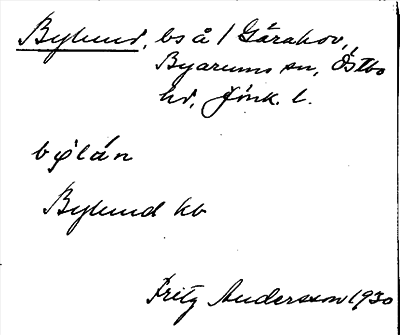 Bylund, bs å 1 Gårahov,
Byarums sn, Östbo
hd, Jönk. l.
Bylund kb
Fritz Andersson 1930